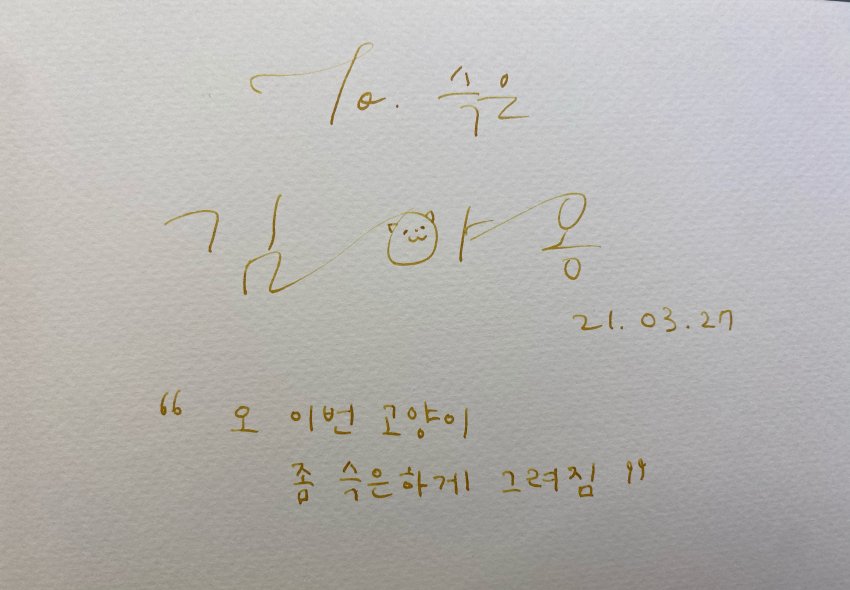 To. 숙은
김야옹
21.03.27
“ 오 이번 고양이
좀 숙은하게 그려짐 ”